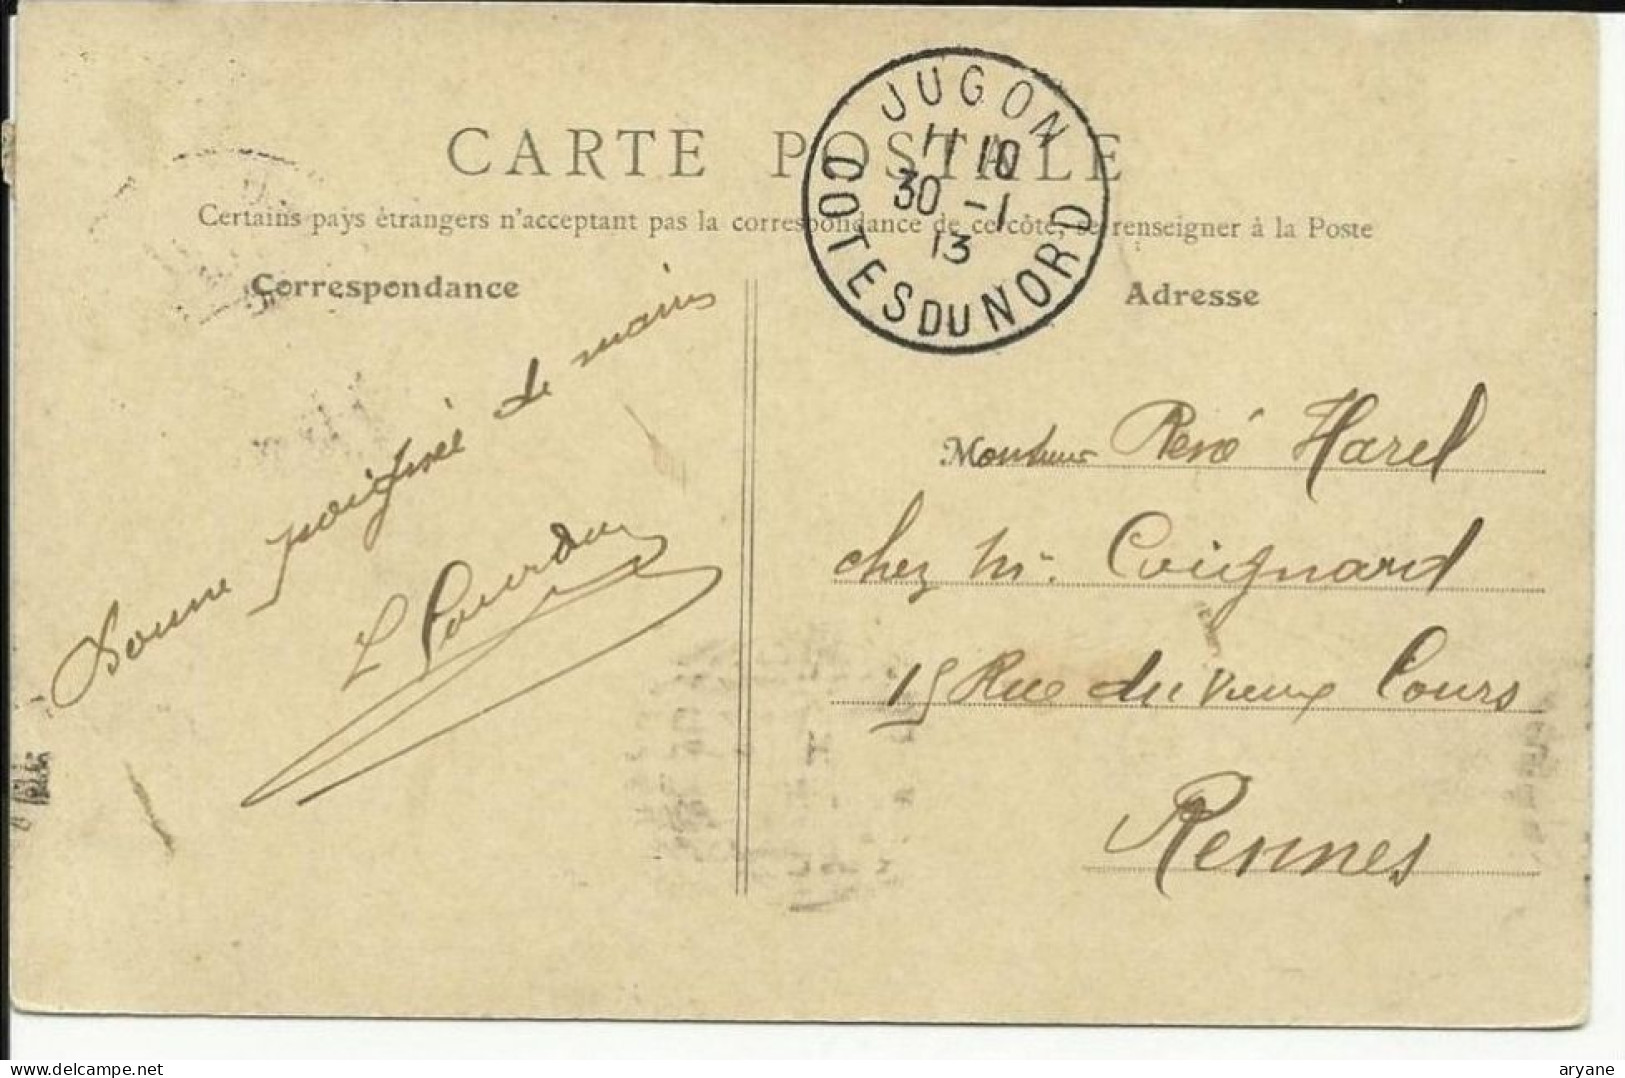 CARTE POSTALE
Certains pays étrangers n'acceptant pas la correspondance de ce côté, se renseigner à la Poste
Correspondance
Adresse
JUGON
11 10
30 -1
13
COTES DU NORD
Bonne poignée de mains
L
Monsieur René Harel
chez M. Coignard
15 Rue du Vieux Cours
Rennes
www.delcampe.net
aryane